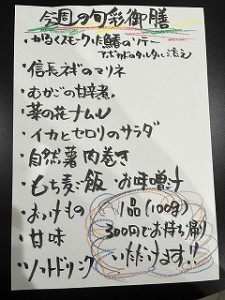 今週の旬彩御膳
・かるくスモークした鰆のソテー
アボカドのタルタル添え
・信長ネギのマリネ
・むかごの甘辛煮
・菜の花ナムル
・イカとセロリのサラダ
・自然薯肉巻き
・もち麦ご飯 お味噌汁
・おつけもの
・甘味
・ソフトドリンク
1品(100g)
300円でお持ち帰り
いただけます!!